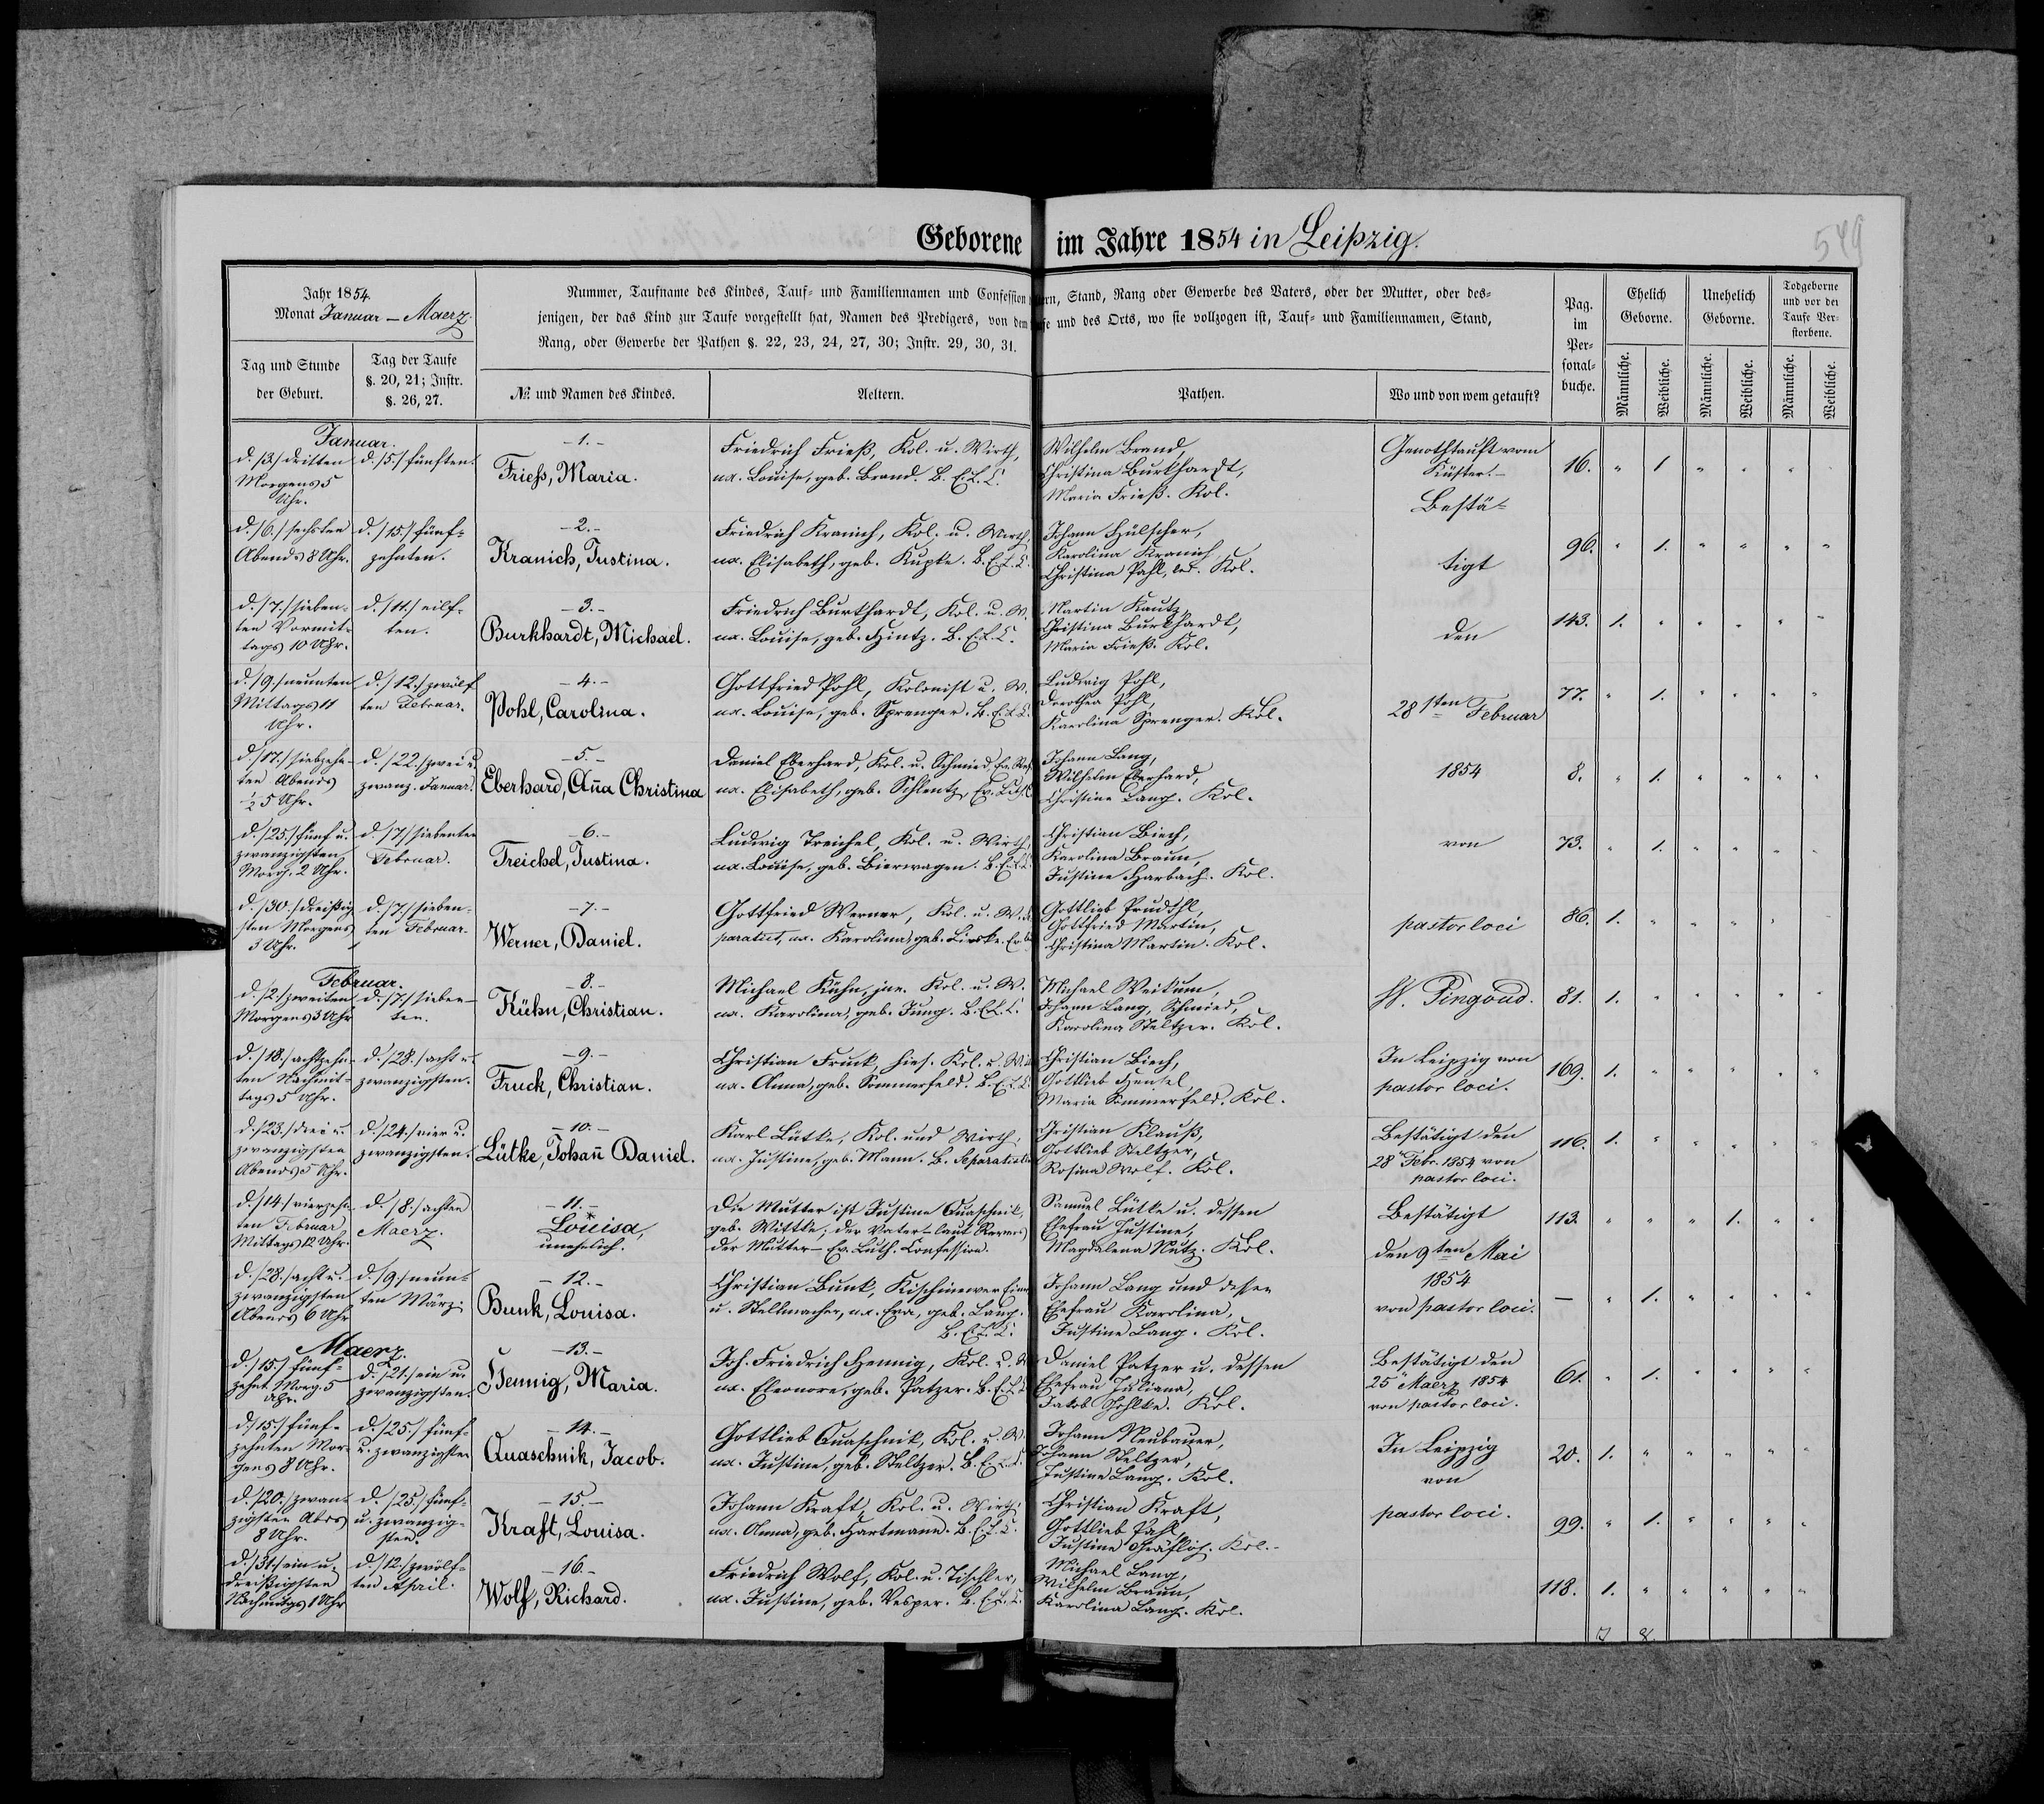 Geborene im Jahre 1854 in Leipzig.
549
Jahr 1854.
Monat Januar – Maerz.
Tag und Stunde
der Geburt.
Tag der Taufe
§. 20, 21; Instr.
§. 26, 27.
Nummer, Taufname des Kindes, Tauf- und Familiennamen und Confession
jenigen, der das Kind zur Taufe vorgestellt hat, Namen des Predigers, von dem
Rang, oder Gewerbe der Pathen §. 22, 23, 24, 27, 30; Instr. 29, 30, 31.
№ und Namen des Kindes.
Aeltern.
Stand, Rang oder Gewerbe des Vaters, oder der Mutter, oder des-
und des Orts, wo sie vollzogen ist, Tauf- und Familiennamen, Stand,
Pathen.
Wo und von wem getauft?
Pag.
im
Per-
sonal-
buche.
Ehelich
Geborne.
Unehelich
Geborne.
Todgeborne
und vor der
Taufe Ver-
storbene.
Männliche.
Weibliche.
Männliche.
Weibliche.
Männliche.
Weibliche.
Januar.
d. /3/ dritten
Morgens 5
Uhr.
d. /5./ fünften.
–1.–
Friess, Maria.
Friedrich Frieß, Kol. u. Wirth,
ux. Louise, geb. Brand. B. E. L. C.
Wilhelm Brand,
Christina Burkhardt,
Maria Frieß. Kol.
Genothtauft vom
Küster.–
Bestä-
16. " 1 " " "
d. /6./ sechsten
Abends 8 Uhr.
d. /15./ fünf-
zehnten.
–2.–
Kranich, Justina.
Friedrich Kranich, Kol. u. Wirth
ux. Elisabeth, geb. Kupke. B. E. L. C.
Johann Hülscher,
Karolina Kranich,
Christina Pahl, led. Kol.
tigt
96. " 1. " " " "
d. /7./ sieben-
ten Vormit-
tags 10 Uhr.
d. /11./ eilf-
ten.
–3.–
Burkhardt, Michael.
Friedrich Burkhardt, Kol. u. W.
ux. Louise, geb. Hintz. B. E. L. C.
Martin Kautz,
Christina Burkhardt,
Maria Frieß. Kol.
den
143. 1. " " " " "
d. /9./ neunten
Mittags 11
Uhr.
d. /12./ zwölf
ten Februar.
–4.–
Pohl, Carolina.
Gottfried Pohl, Kolonist u. W.
ux. Louise, geb. Sprenger. B. E. L. C.
Ludwig Pohl,
Dorothea Pohl,
Karolina Sprenger. Kol.
28sten Februar
77. " 1. " " " "
d. /17./ siebzehn-
ten Abends
½ 5 Uhr.
d. /22./ zwei u.
zwanz. Januar.
–5.–
Eberhard, Aña Christina
Daniel Eberhard, Kol. u. Schmied, Ev. Ref.
ux. Elisabeth, geb. Schlentz, Ev. Luth.
Johann Lang,
Wilhelm Eberhard,
Christine Lang. Kol.
1854
8. " 1. " " " "
d. /25./ fünf u.
zwanzigsten
Morg. 2 Uhr.
d. /7/ siebenten
Februar.
–6.–
Treichel, Justina.
Ludwig Treichel, Kol. u. Wirth,
ux. Louise, geb. Bierwagen. B. E. L. C.
Christian Biech,
Karolina Braun,
Justine Harbach. Kol.
von
73. " 1. " " " "
d. /30./ dreißig
sten Morgens
3 Uhr.
d. /7./ sieben-
ten Februar.
–7.–
Werner, Daniel.
Gottfried Werner, Kol. u. W.
paratist, ux. Karolina, geb. Lieske.
Gottlieb Prudöhl,
Gottfried Martin,
Christina Martin. Kol.
pastor loci
86. 1. " " " "
Februar.
d. /2./ zweiten
Morgens 3 Uhr
d. /7./ sieben-
ten.
–8.–
Kühn, Christian.
Michael Kühn, jun. Kol. u. W.
ux. Karolina, geb. Jung. B. E. L. C.
Michael Weikum,
Johann Lang, Schmied,
Karolina Steltzer. Kol.
W. Pingoud.
81. 1. " " " " "
d. /18./ achtzehn-
ten Nachmit-
tags 5 Uhr.
d. /28./ acht u.
zwanzigsten.
–9.–
Fruck, Christian.
Christian Fruck, hies. Kol. u.
ux. Anna, geb. Sommerfeld. B. E. L. C.
Christian Biech,
Gottlieb Hensel,
Maria Sommerfeld. Kol.
In Leipzig von
pastor loci.
169. 1. " " " " "
d. /23./ drei u.
zwanzigsten
Abends 5 Uhr.
d. /24./ vier u.
zwanzigsten.
–10.–
Lütke, Johañ Daniel.
Karl Lütke, Kol. und Wirth,
ux. Justine, geb. Mann. B. Separatisten
Christian Klauß,
Gottlieb Steltzer,
Rosina Wolf. Kol.
Bestätigt den
28 Febr. 1854 von
pastor loci.
116. 1. " " " " "
d. /14./ vierzehn-
ten Februar
Mittags 12 Uhr.
d. /8./ achten
Maerz.
–11.–
*
Louisa,
unehelich.
Die Mutter ist Justine Quaschnik,
geb. Wittke, der Vater – laut
der Mutter – Ev. Luth. Confession.
Samuel Lütke u. dessen
Ehefrau Justine,
Magdalena Nutz. Kol.
Bestätigt
den 9ten Mai
113. " " " 1. " "
d. /28./ acht u.
zwanzigsten
Abends 6 Uhr
d. /9./ neun-
ten März.
–12.–
Bunk, Louisa.
Christian Bunk, Kischinewer
u. Stellmacher, ux. Eva, geb. Lang.
B. E. L. C.
Johann Lang und dessen
Ehefrau Karolina,
Justine Lang. Kol.
1854
von pastor loci.
– " 1. " " " "
Maerz.
d. /15./ fünf-
zehnt. Morg. 5
Uhr.
d. /21./ ein u.
zwanzigsten.
–13.–
Hennig, Maria.
Joh. Friedrich Hennig, Kol. u. W
ux. Eleonore, geb. Patzer. B. E. L. C.
Daniel Patzer u. dessen
Ehefrau Juliana,
Jakob Kol.
Bestätigt den
25 Maerz 1854
von pastor loci.
61. " 1. " " " "
d. /15./ fünf-
zehnten Mor-
gens 8 Uhr.
d. /25./ fünf-
u. zwanzigsten
–14.–
Quaschnik, Jacob.
Gottlieb Quaschnik, Kol. u. W.
ux. Justine, geb. Steltzer. B. E. L. C.
Johann Neubauer,
Johann Steltzer,
Justine Lang. Kol.
In Leipzig
von
20. 1. " " " " "
d. /20./ zwan-
zigsten Abds
8 Uhr.
d. /25./ fünf-
u. zwanzig-
sten.
–15.–
Kraft, Louisa.
Johann Kraft, Kol. u. Wirth,
ux. Anna, geb. Hartmann. B. E. L. C.
Christian Kraft,
Gottlieb Pahl,
Justine Kol.–
pastor loci.
99. " 1. " " " "
d. /31./ ein u.
dreißigsten
Nachmitgs 1 Uhr
d. /12./ zwölf-
ten April.
–16.–
Wolf, Richard.
Friedrich Wolf, Kol. u. Tischler,
ux. Justine, geb. Vesper. B. E. L. C.
Michael Lang,
Wilhelm Braun,
Karolina Lang. Kol.
118. 1. " " " " "
7 8.